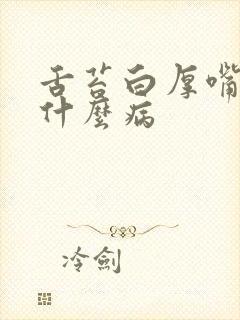 舌苔白厚嘴
什麼病
冷劍